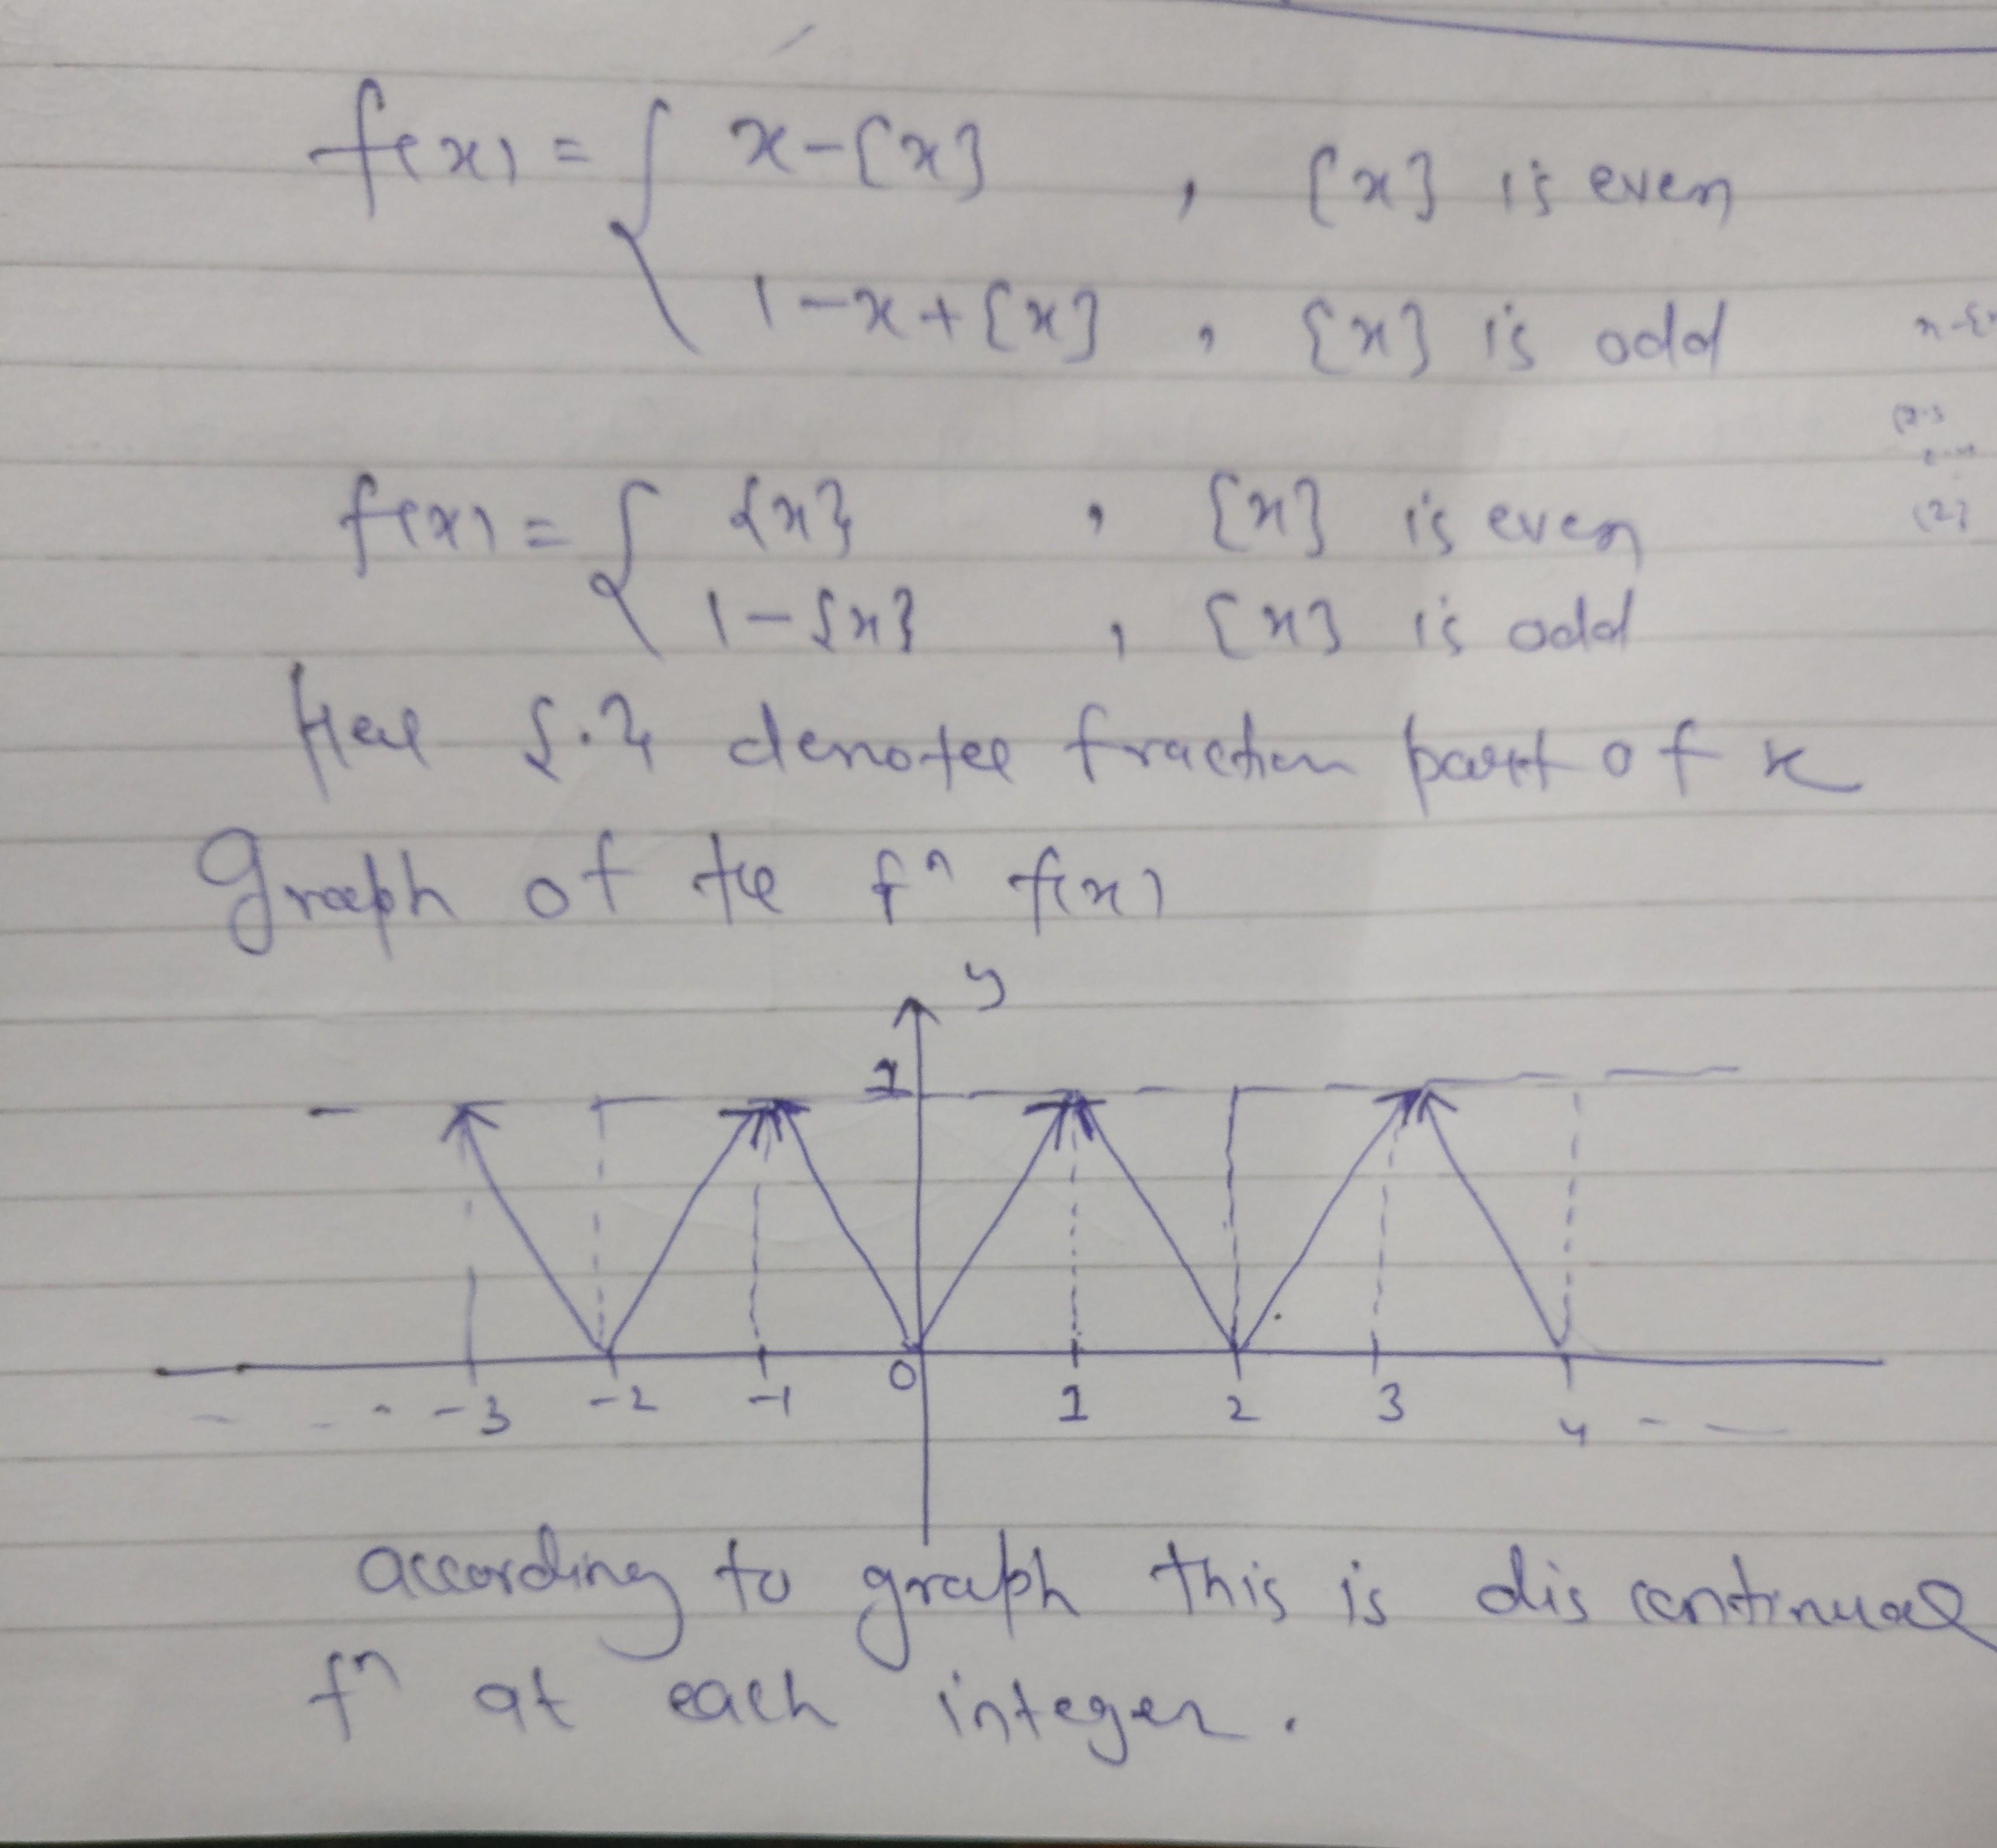 f(x) = { x-[x] , [x] is even
1-x+[x] , [x] is odd
f(x) = { {x} , [x] is even
1-{x} , [x] is odd
Here {.} denotes fraction part of x
Graph of the fⁿ f(x)
y
1
-3 -2 -1 0 1 2 3 4
according to graph this is dis continuous
fⁿ at each integer.